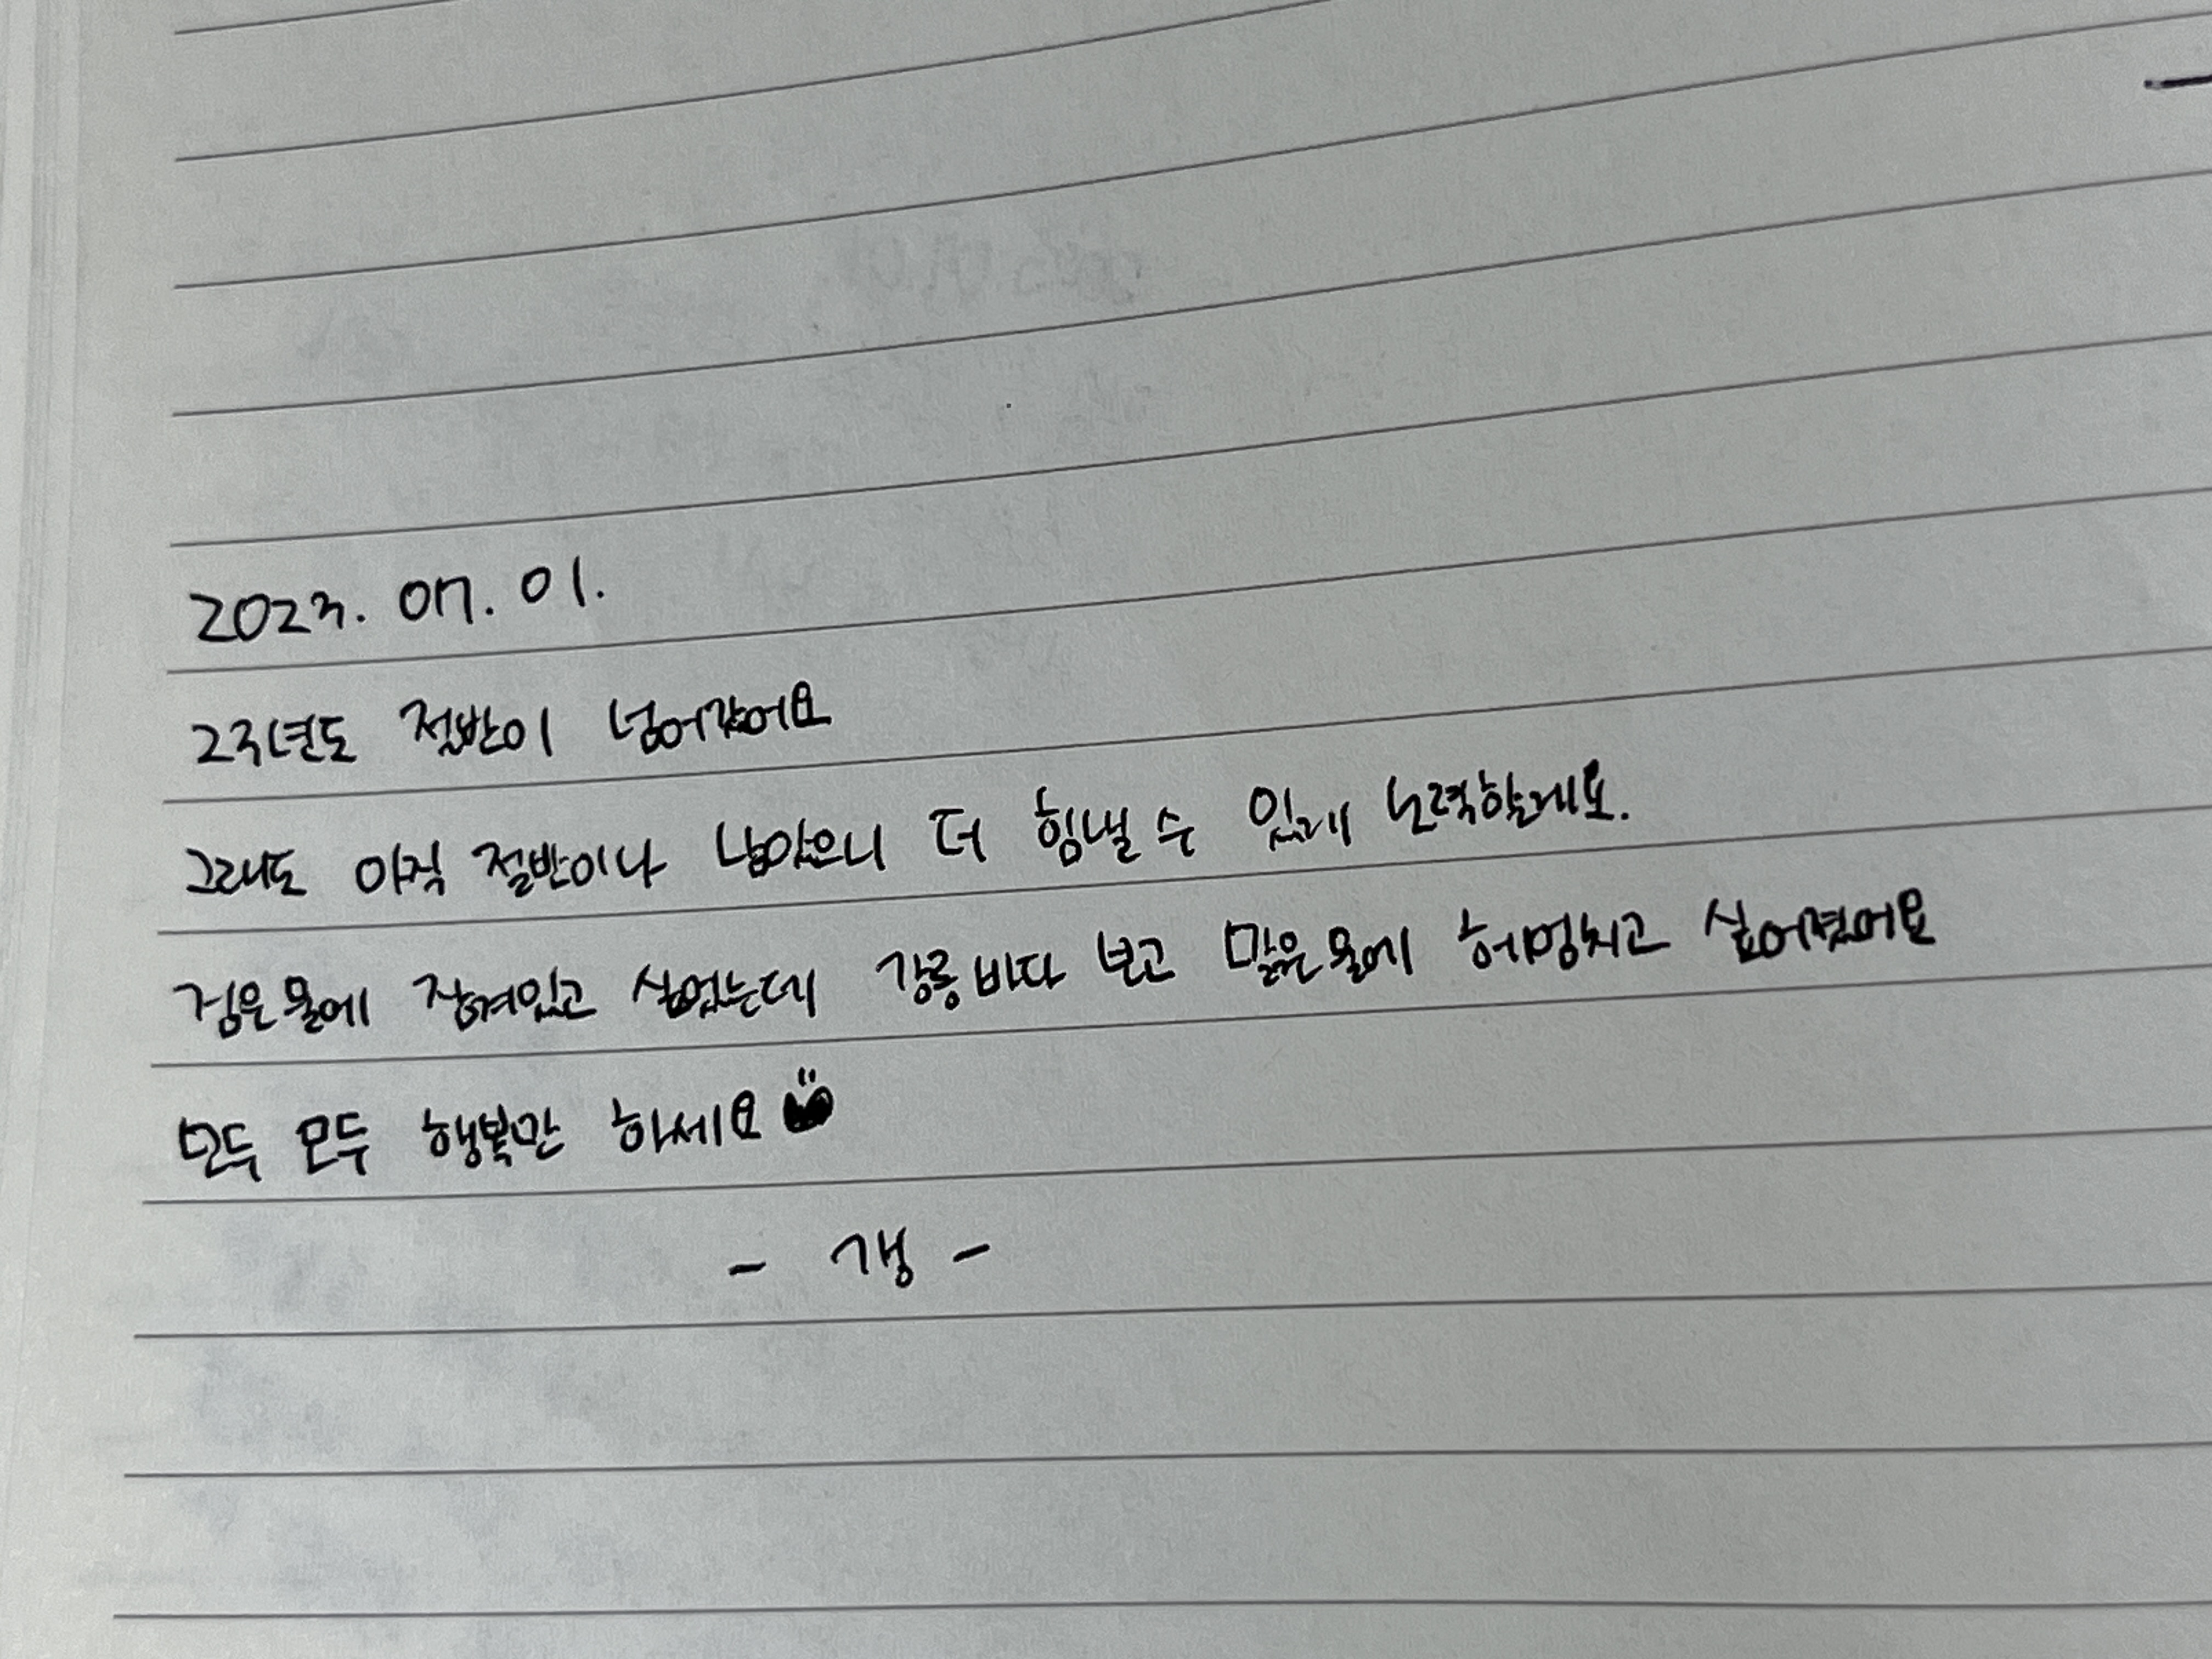 2023. 07. 01.
23년도 절반이 넘어갔어요
그래도 아직 절반이나 남았으니 더 힘낼 수 있게 노력할게요.
검은물에 잠겨있고 싶었는데 강릉바다 보고 맑은물에 헤엄치고 싶어졌어요
모두 모두 행복만 하세요
- 갱 -